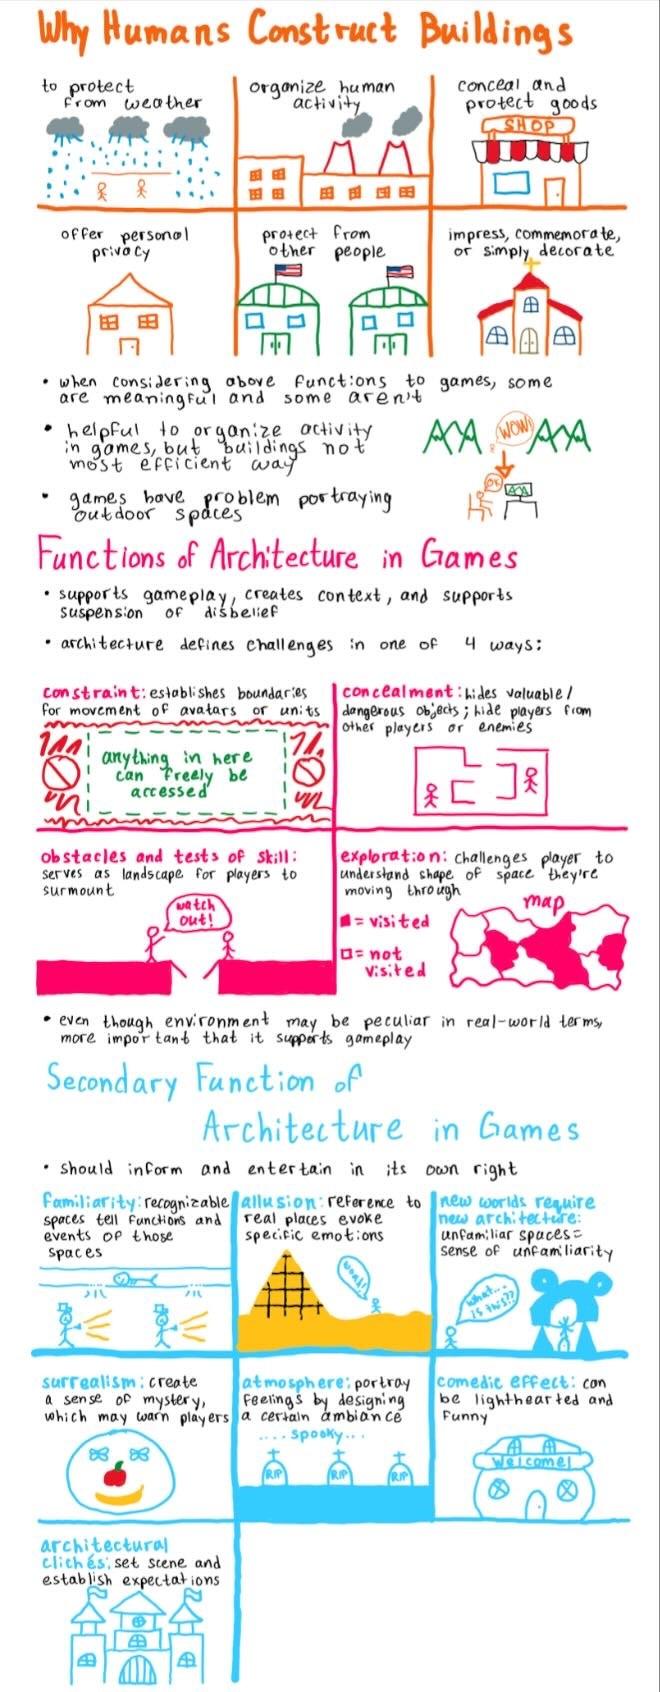 Why Humans Construct Buildings
to protect
from weather
organize human
activity
conceal and
protect goods
SHOP
offer personal
privacy
protect from
other people
impress, commemorate,
or simply decorate
• when considering above functions to games, some
are meaningful and some aren't
• helpful to organize activity
in games, but buildings not
most efficient way
WOW!
OK
• games have problem portraying
outdoor spaces
Functions of Architecture in Games
• supports gameplay, creates context, and supports
suspension of disbelief
• architecture defines challenges in one of 4 ways:
constraint: establishes boundaries
for movement of avatars or units
anything in here
can freely be
accessed
concealment: hides valuable/
dangerous objects; hide players from
other players or enemies
obstacles and tests of skill:
serves as landscape for players to
surmount
watch
out!
exploration: challenges player to
understand shape of space they're
moving through
= visited
= not
visited
map
• even though environment may be peculiar in real-world terms,
more important that it supports gameplay
Secondary Function of
Architecture in Games
• should inform and entertain in its own right
familiarity: recognizable
spaces tell functions and
events of those
spaces
allusion: reference to
real places evoke
specific emotions
woah!
new worlds require
new architecture:
unfamiliar spaces=
sense of unfamiliarity
what...
is this??
surrealism: create
a sense of mystery,
which may warn players
atmosphere: portray
feelings by designing
a certain ambiance
....spooky...
RIP
RIP
RIP
comedic effect: can
be lighthearted and
funny
Welcome!
architectural
clichés: set scene and
establish expectations